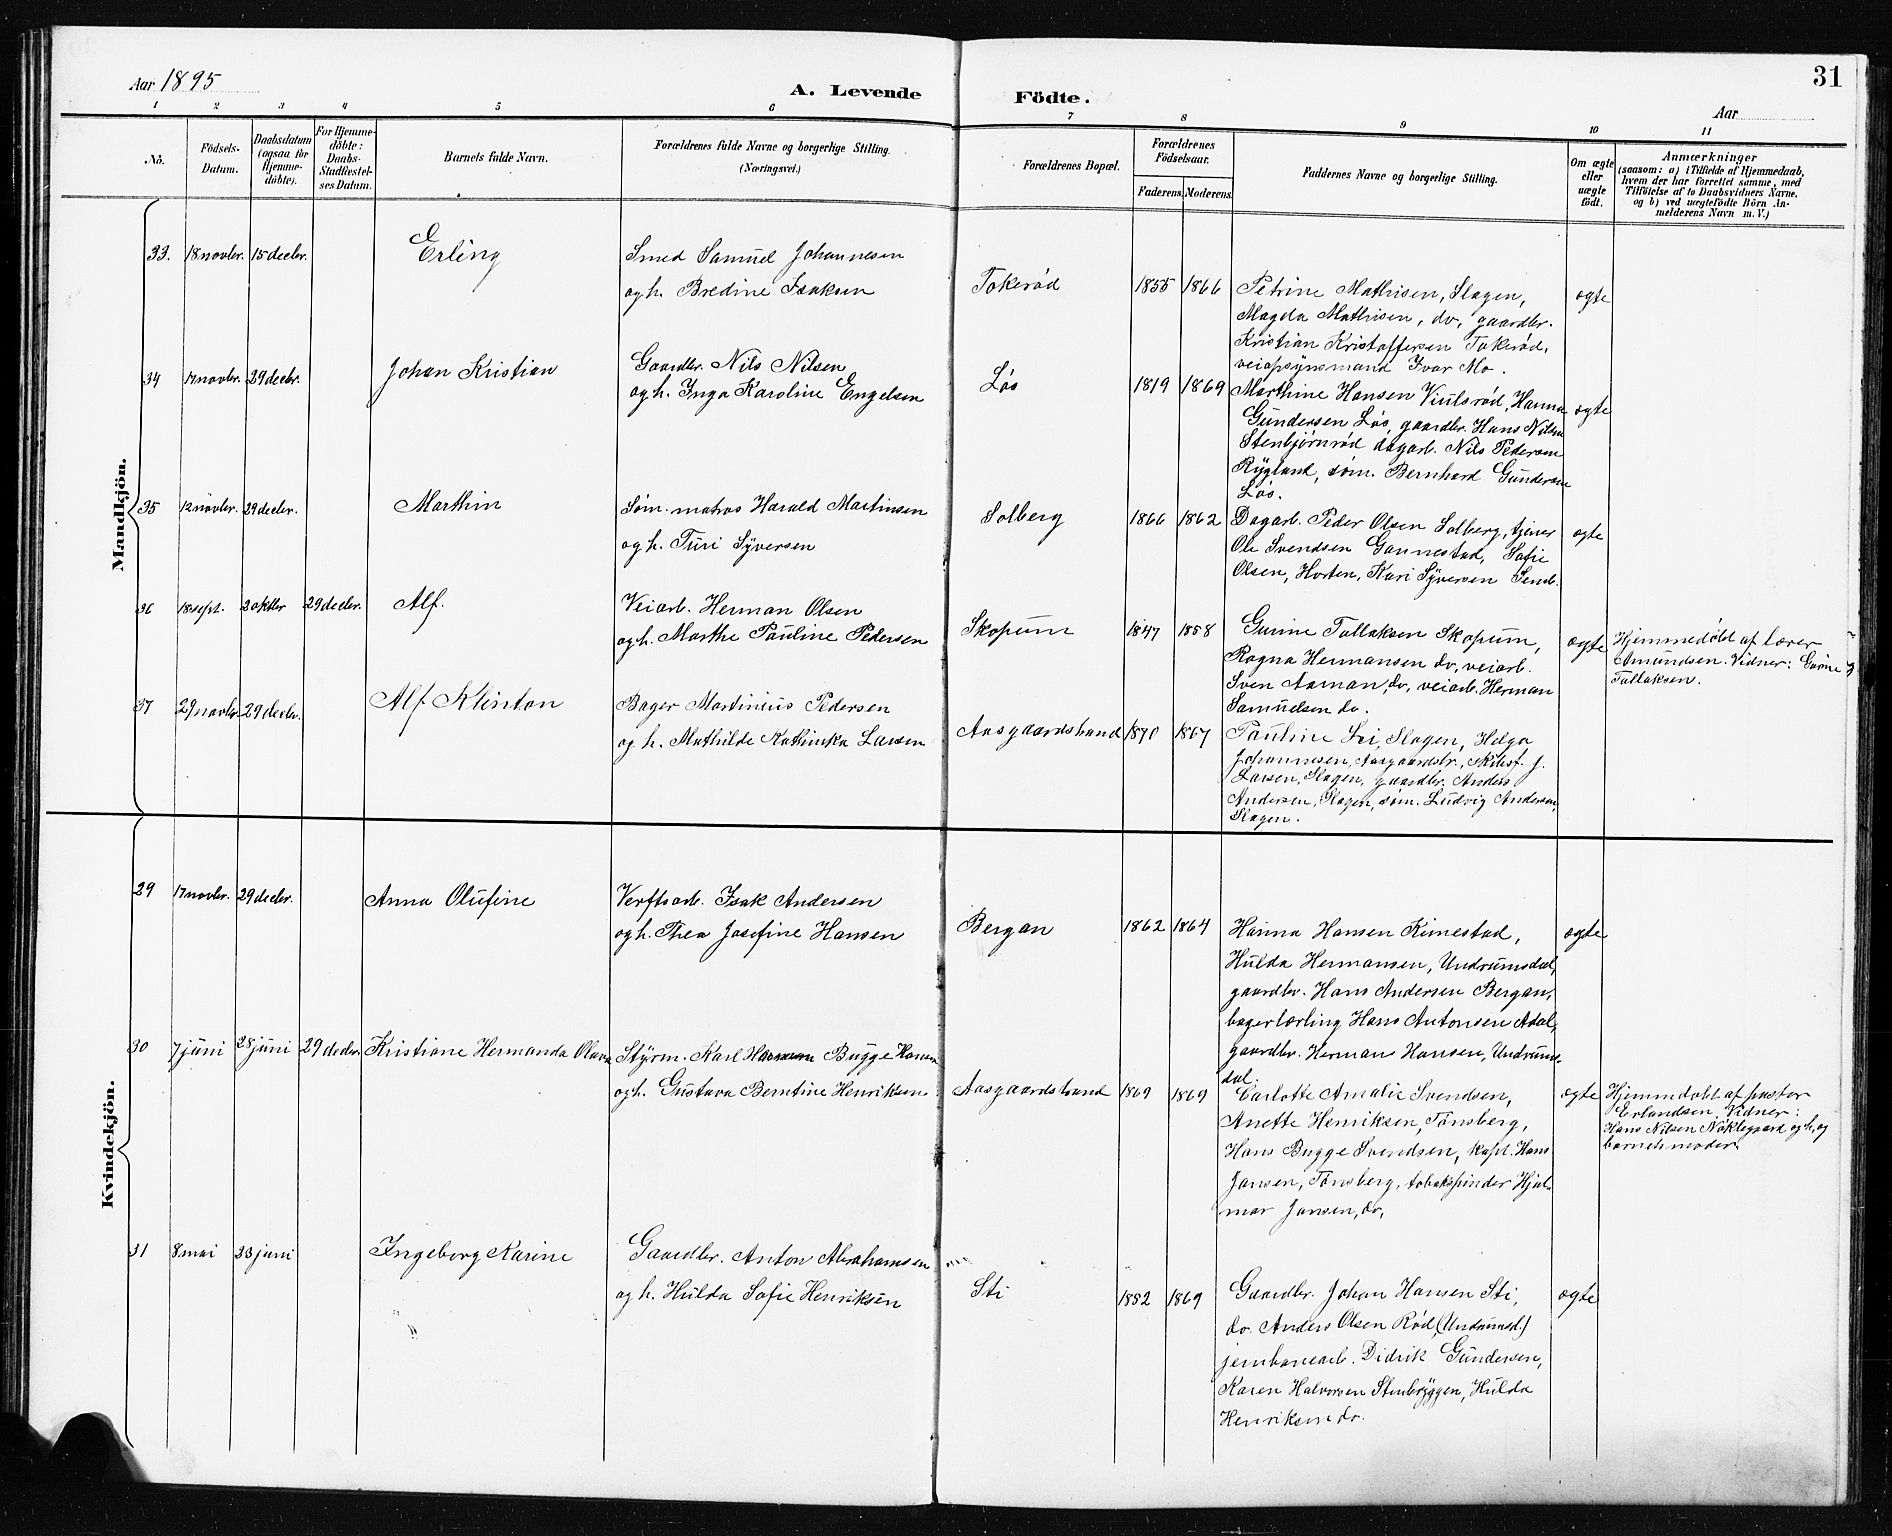 Aar 1895
A. Levende Födte.
Aar
31
1 2 3 4 5 6 7 8 9 10 11
No.
Födsels-Datum.
Daabsdatum (ogsaa for Hjemme-döbte).
For Hjemme-döbte: Daabs-Stadfæstel-ses Datum.
Barnets fulde Navn.
Forældrenes fulde Navne og borgerlige Stilling.
(Næringsvei.)
Forældrenes Bopæl.
Forældrenes Födselsaar.
Faderens. Moderens.
Faddernes Navne og borgerlige Stilling.
Om ægte eller uægte födt.
Anmærkninger
(saasom: a) i Tilfælde af Hjemmedaab,
hvem der har forrettet samme, med
Tilföielse af to Daabsvidners Navne.
og b) ved uægtefödte Börn An-
melderens Navn m. V.)
Mandkjön.
33. 18 novbr. 15 decbr. Erling
Smed Samuel Johannesen
og h. Bredine Isaksen
Tokerød 1855 1866
Petrine Mathisen, Slagen,
Magda Mathisen, do, gaardbr.
Kristian Kristoffersen Tokerød,
veiopsynsmand Ivar Mo.
ægte
34 17 novbr. 29 decbr. Johan Kristian
Gaardbr. Nils Nilsen
og h. Inga Karoline Engelsen
Løs 1819 1869
Marthine Hansen Viulsrød, Hanna
Gundersen Løs, gaardbr. Hans Nilsen
Stenbjørnrød dagarb. Nils Pedersen
Rygland, søm. Bernhard Gundersen
Løs.
ægte
35 12 novbr. 29 decbr. Marthin
Søm. matros Harald Martinsen
og h. Turi Syversen
Solberg 1866 1862
Dagarb. Peder Olsen Solberg, tjener
Ole Svendsen Gannestad, Sofie
Olsen, Horten, Kari Syversen Semb.
ægte
36 18 sept. 2 oktbr 29 decbr. Alf.
Veiarb. Herman Olsen
og h. Marthe Pauline Pedersen
Skopum 1847 1858
Gurine Tallaksen Skopum,
Ragna Hermansen do, veiarb.
Sven Aaman, do, veiarb. Herman
Samuelsen do.
ægte
Hjemmedøbt af lærer
Amundsen. Vidner: Gurine
Tallaksen.
37 29 novbr. 29 decbr. Alf Klinton
Bager Martinius Pedersen
og h. Mathilde Kathinka Larsen
Aasgaardstrand 1870 1867
Pauline Lei, Slagen, Helga
Johannesen, Aasgaardstr., Skibsf. J.
Larsen, Slagen, gaardbr. Anders
Andersen, Slagen, søm. Ludvig Andersen,
Slagen.
Kvindekjön.
29 17 novbr. 29 decbr. Anna Olufine
Verftsarb. Isak Andersen
og h. Thea Josefine Hansen
Bergan 1862 1864
Hanna Hansen Kimestad,
Hulda Hermansen, Undrumsdal,
gaardbr. Hans Andersen Bergan,
bagerlærling Hans Antonsen Adal,
gaardbr. Herman Hansen, Undrums-
dal.
ægte
30 7 juni 28 juni 29 decbr. Kristiane Hermanda Olava
Styrm. Karl Bugge Hansen
og h. Gustava Berntine Henriksen
Aasgaardstrand 1869 1869
Carlotte Amalie Svendsen,
Anette Henriksen, Tønsberg,
Hans Bugge Svendsen, kapt. Hans
Jansen, Tønsberg, tobakspinder Hjal-
mar Jansen, do,
ægte
Hjemmedøbt af pastor
Erlandsen, Vidner:
Hans Nilsen Nøklegaard og h, og
barnets moder
31 8 mai 23 juni Ingeborg Karine
Gaardbr. Anton Abrahamsen
og h. Hulda Sofie Henriksen
Sti 1852 1869
Gaardbr. Johan Hansen Sti,
do. Anders Olsen Rød, (Undrumsd.)
jernbanearb. Didrik Gundersen,
Karen Halvorsen Stenbryggen, Hulda
Henriksen do.
ægte